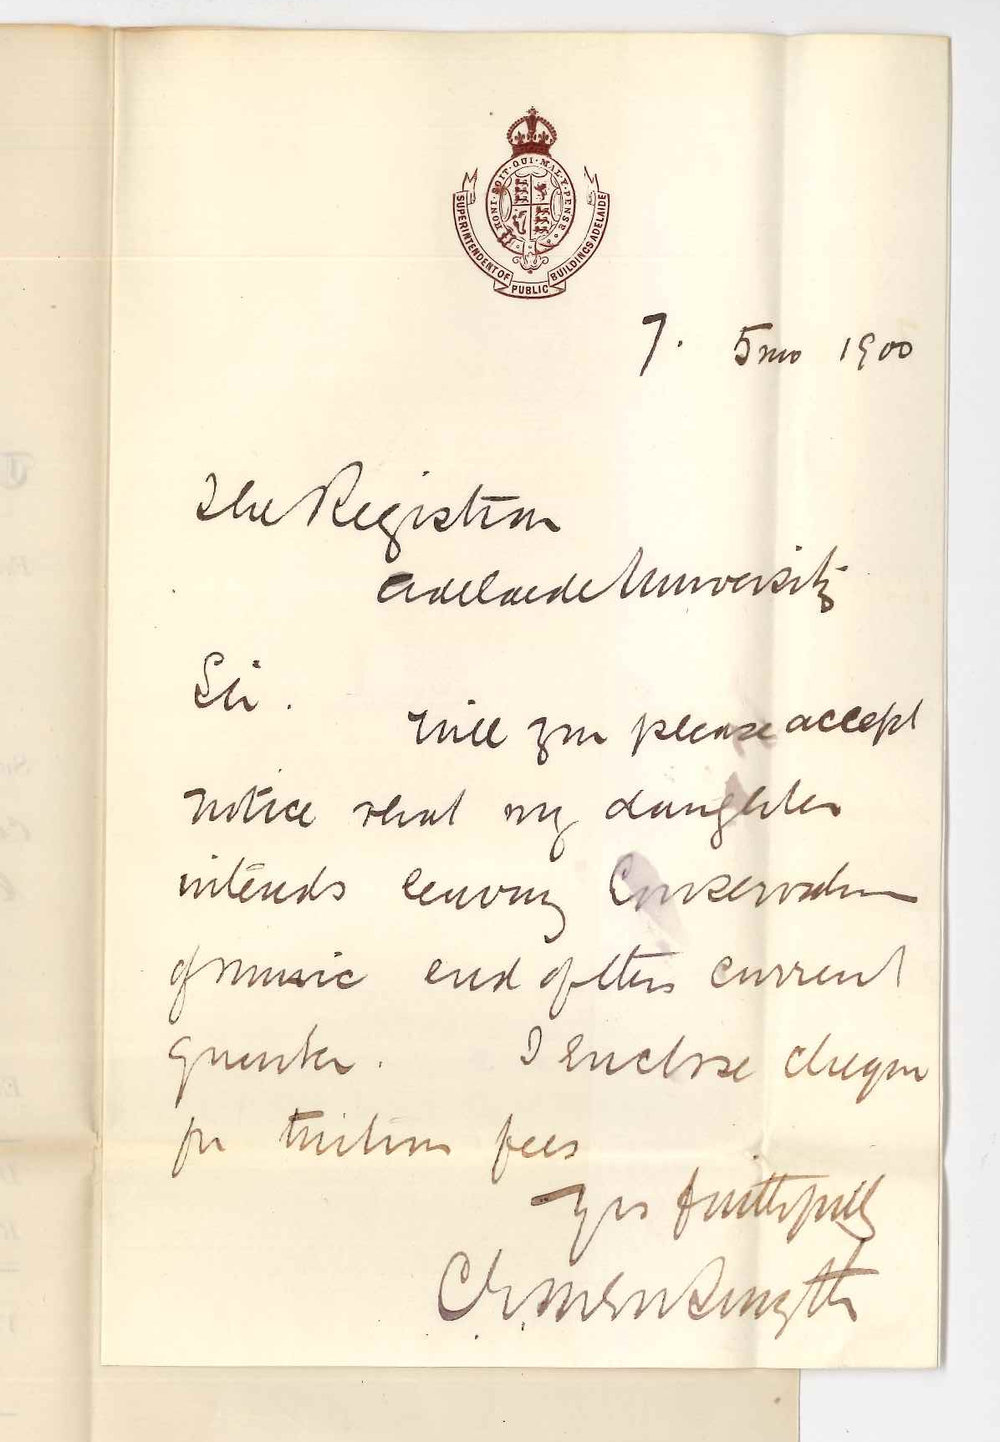 HONI · SOIT · QUI · MAL · Y · PENSE
SUPERINTENDENT OF PUBLIC BUILDINGS ADELAIDE
7. 5mo 1900
The Registrar
Adelaide University
Sir.
Will you please accept
notice that my daughter
intends leaving Conservatorium
of music end of this current
quarter. I enclose cheque
for tuition fees
Yrs faithfully